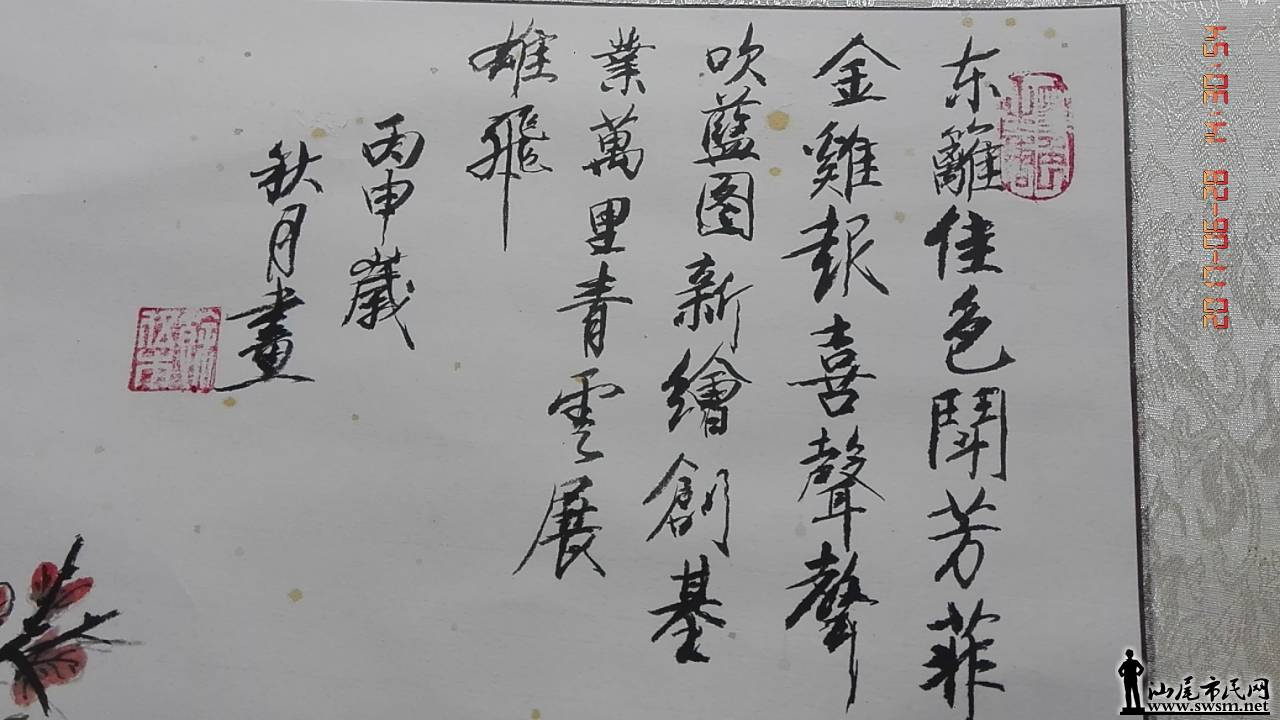 东籬佳色鬪芳菲
金雞報喜聲聲
吹藍图新繪創基
業萬里青雲展
雄飛
丙申歲
秋月畫
2017-06-28 14:30:54
汕尾市民网
www.swsm.net